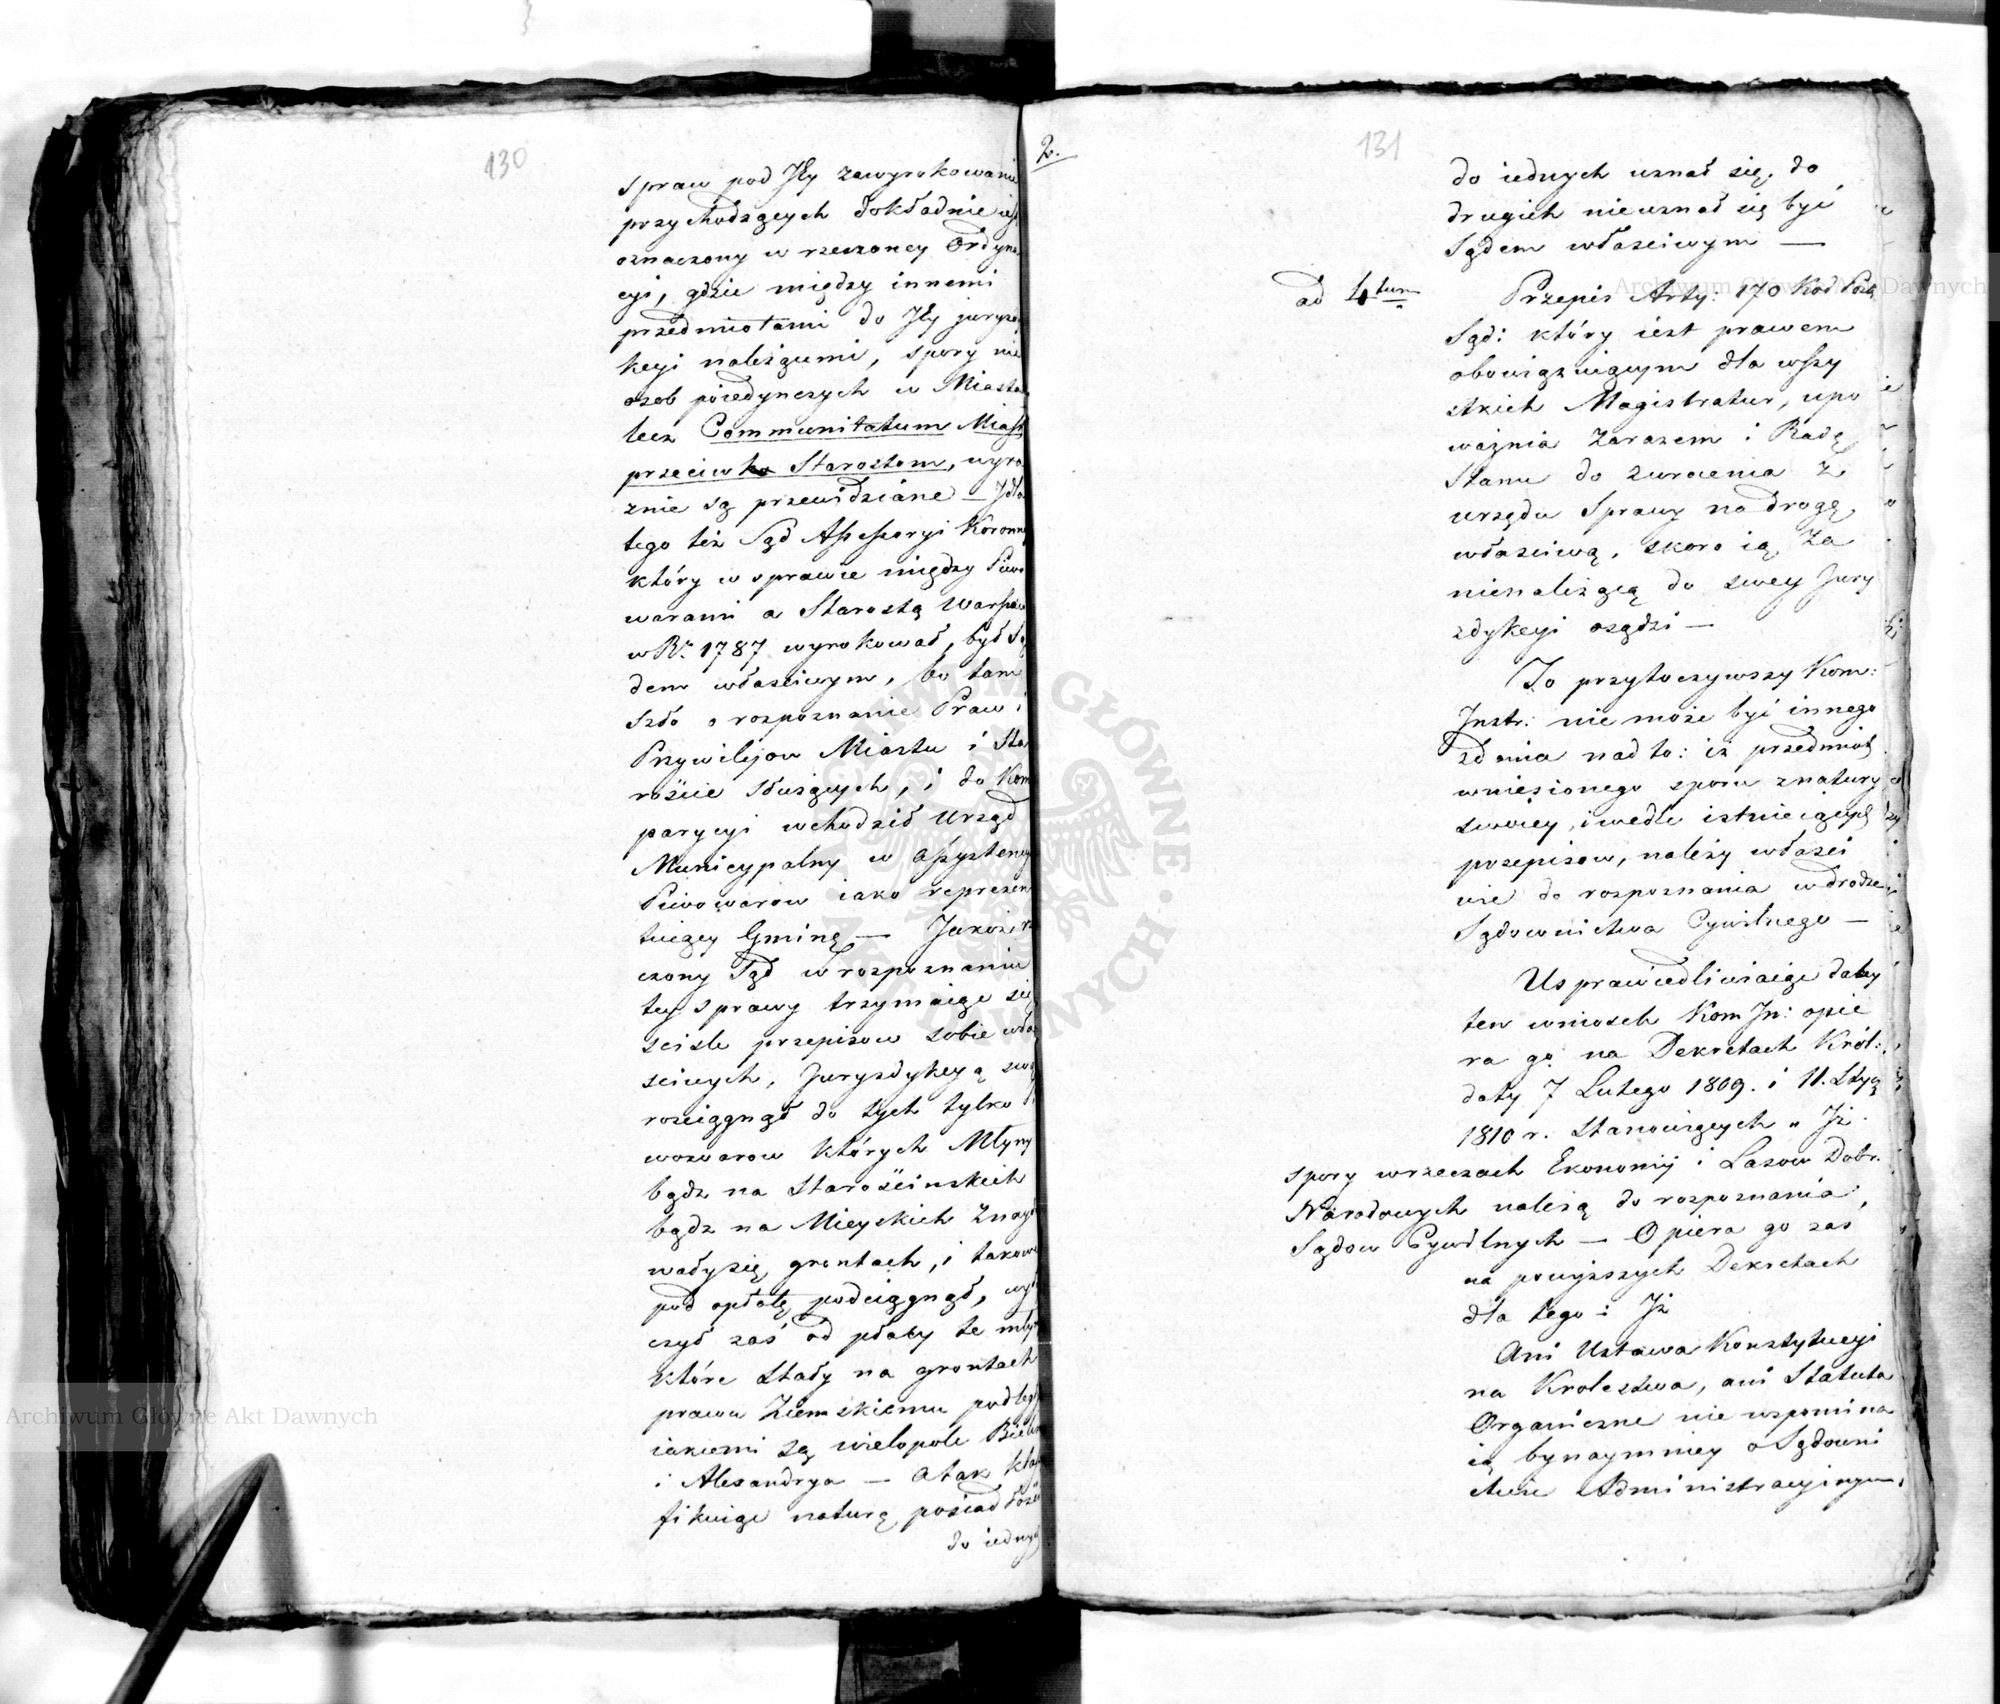 130
spraw pod Jey zawyrokowanie
przychodzących dokładnie iest
oznaczony w rzeczoney Ordyna
cyi, gdzie między innemi
przedmiotami do Jey juryzdy
kcyi należącemi, spory nie
osob poiedynczych w Miasta
lecz Communitatum Miast
przeciwko Starostom, wyra
znie są przewidziane — Jdla
tego też Sąd Assessoryi Koronny
który w sprawie między Piwo
warami a Starostą Warszaw
w R. 1787 wyrokował, był Są
dem właściwym, bo tam
szło o rozpoznanie Praw i
Przywilejow Miastu i Sta
roście służących, i do Kom
parycyi wchodził Urząd
Municypalny w assystency
Piwowarow iako reprezen
tuiący Gminę — Jakoż rze
czony Sąd w rozpoznaniu
tey sprawy trzymaiąc się
sciśle przepisow sobie wła
sciwych, Juryzdykcyą swą
rościągnął do tych tylko Pi
wowarow których Młyny
bądz na Starościnskich
bądz na Mieyskich znaydo
wały się, grontach, i takowe
pod opłatę podciągnął, wyłą
czył zaś od płacy te młyn
które stały na grontach
prawu Ziemskiemu podległ
iakiemi są wielopole Bielin
i Alexandrya — A tak kla
fikuiąc naturą posiadłości
do iednych
2.
131
do iednych uznał się, do
drugich nieuznał się być
Sądem właściwym —
ad 4tum
Przepis Arty: 170 Kod Post
Sąd: który iest prawem
obowiązuiącym dla wszy
stkich Magistratur, upo
ważnia zarazem i Radę
Stanu do zwrócenia z
urzędu Sprawy na drogę
właściwą, skoro ią za
nienależącą do swey Jury
zdykcyi osądzi —
To przytoczywszy Kom:
Instr: nie może być innego
zdania nad to: iż przedmiot
wniesionego sporu z natury
swoiey, i wedle istnieiących
przepisow, należy właści
wie do rozpoznania w drodze
Sądownictwa Cywilnego —
Usprawiedliwiaiąc daley
ten wniosek Kom Jn: opie
ra go na Dekretach Król:
daty 7 Lutego 1809. i 11. Stycz
1810 r. stanowiących „ Jż
spory w rzeczach Ekonomij i Lasow Dobr
Narodowych należą do rozpoznania
Sądow Cywilnych — Opiera go zaś
na powyższych Dekretach
dla tego: Jż
Ani Ustawa Konstytucyi
na Krolestwa, ani Statuta
Organiczne nie wspomina
ią bynaymniey o Sądowni
ctwie Administracyinym,
Archiwum Główne Akt Dawnych
Archiwum Główne Akt Dawnych
ARCHIWUM GŁÓWNE AKT DAWNYCH